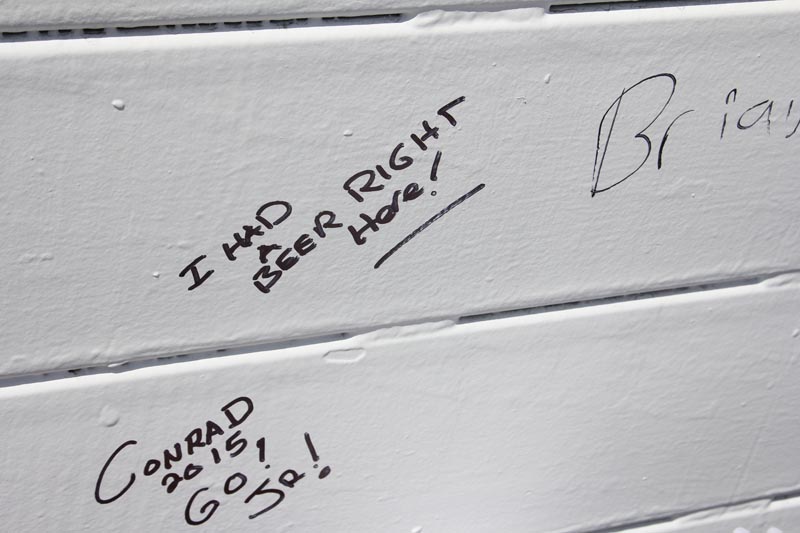 I HAD
A
BEER RIGHT
Here!
Brian
CONRAD
2015!
GO!
JR!